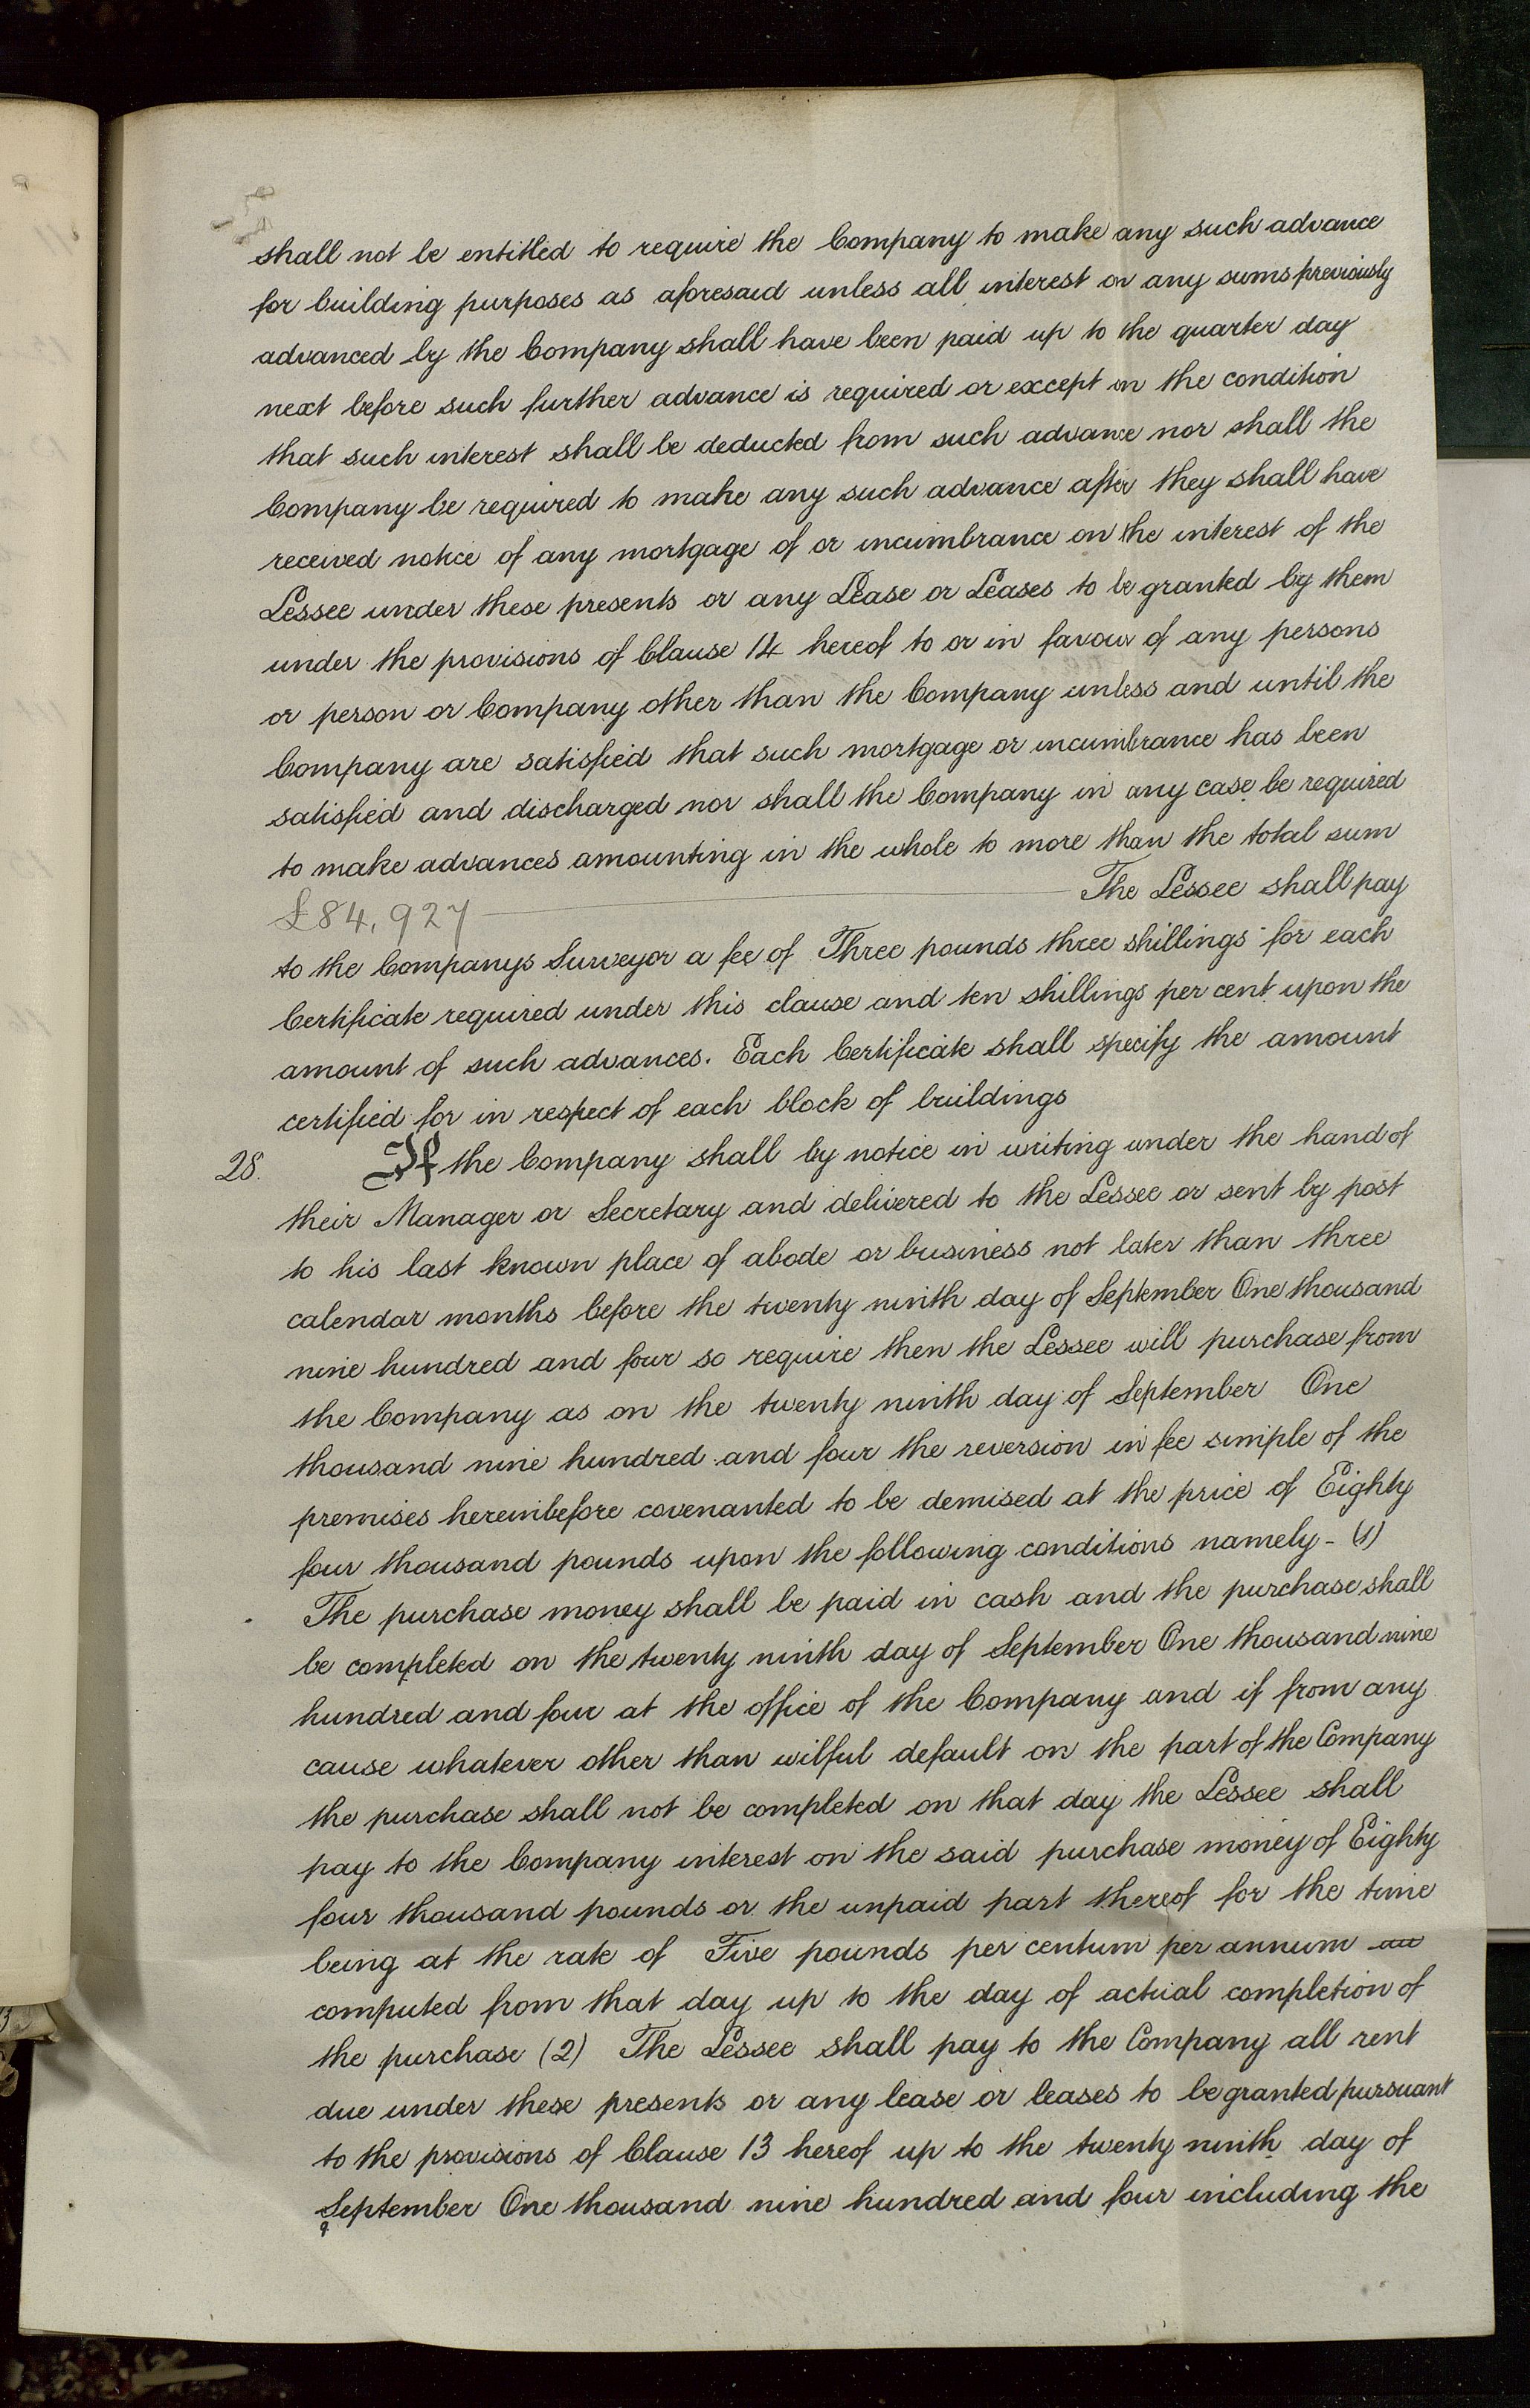 shall not be entitled to require the Company to make any such advance
for building purposes as aforesaid unless all interest on any sums previously
advanced by the Company shall have been paid up to the quarter day
next before such further advance is required or except on the condition
that such interest shall be deducted from such advance nor shall the
Company be required to make any such advance after they shall have
received notice of any mortgage of or incumbrance on the interest of the
Lessee under these presents or any Lease or Leases to be granted by them
under the provisions of Clause 14 hereof to or in favour of any persons
or person or Company other than the Company unless and until the
Company are satisfied that such mortgage or incumbrance has been
satisfied and discharged nor shall the Company in any case be required
to make advances amounting in the whole to more than the total sum
£84,927 The Lessee shall pay
to the Companys Surveyor a fee of Three pounds three shillings for each
Certificate required under this clause and ten shillings per cent upon the
amount of such advances. Each Certificate shall specify the amount
certified for in respect of each block of buildings
28. If the Company shall by notice in writing under the hand of
their Manager or Secretary and delivered to the Lessee or sent by post
to his last known place of abode or business not later than three
calendar months before the twenty ninth day of September One thousand
nine hundred and four so require then the Lessee will purchase from
the Company as on the twenty ninth day of September One
thousand nine hundred and four the reversion in fee simple of the
premises hereinbefore covenanted to be demised at the price of Eighty
four thousand pounds upon the following conditions namely - (1)
The purchase money shall be paid in cash and the purchase shall
be completed on the twenty ninth day of September One thousand nine
hundred and four at the office of the Company and if from any
cause whatever other than wilful default on the part of the Company
the purchase shall not be completed on that day the Lessee shall
pay to the Company interest on the said purchase money of Eighty
four thousand pounds or the unpaid part thereof for the time
being at the rate of Five pounds per centum per annum
computed from that day up to the day of actual completion of
the purchase (2) The Lessee shall pay to the Company all rent
due under these presents or any lease or leases to be granted pursuant
to the provisions of Clause 13 hereof up to the twenty ninth day of
September One thousand nine hundred and four including the